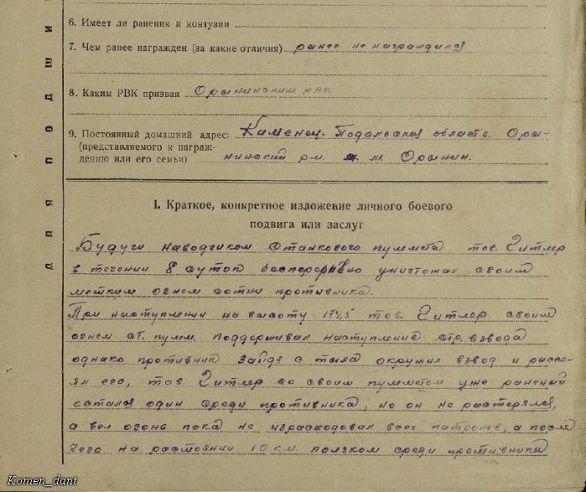 6. Имеет ли ранения и контузии
7. Чем ранее награжден (за какие отличия) ранее не награждался
8. Каким РВК призван Орынинским рвк
9. Постоянный домашний адрес: Каменец-Подольская область. Оры-
(представляемого к награж-
дению или его семьи) нинский р-н. м. Орынин.
I. Краткое, конкретное изложение личного боевого
подвига или заслуг
Будучи наводчиком станкового пулемета тов. Гитлер
в течении 8 суток бесперерывно уничтожал своим
метким огнем сотни противника.
При наступлении на высоту 174,5 тов. Гитлер своим
огнем ст. пулем. поддерживал наступление стр. взвода
однако противник зайдя с тыла окружил взвод и рассе-
ял его, тов. Гитлер со своим пулеметом уже раненый
остался один среди противника, но он не растерялся,
а вел огонь пока не израсходовал всех патронов, а после
чего на расстоянии 10 км. ползком среди противника
для подшив
Komen_dant